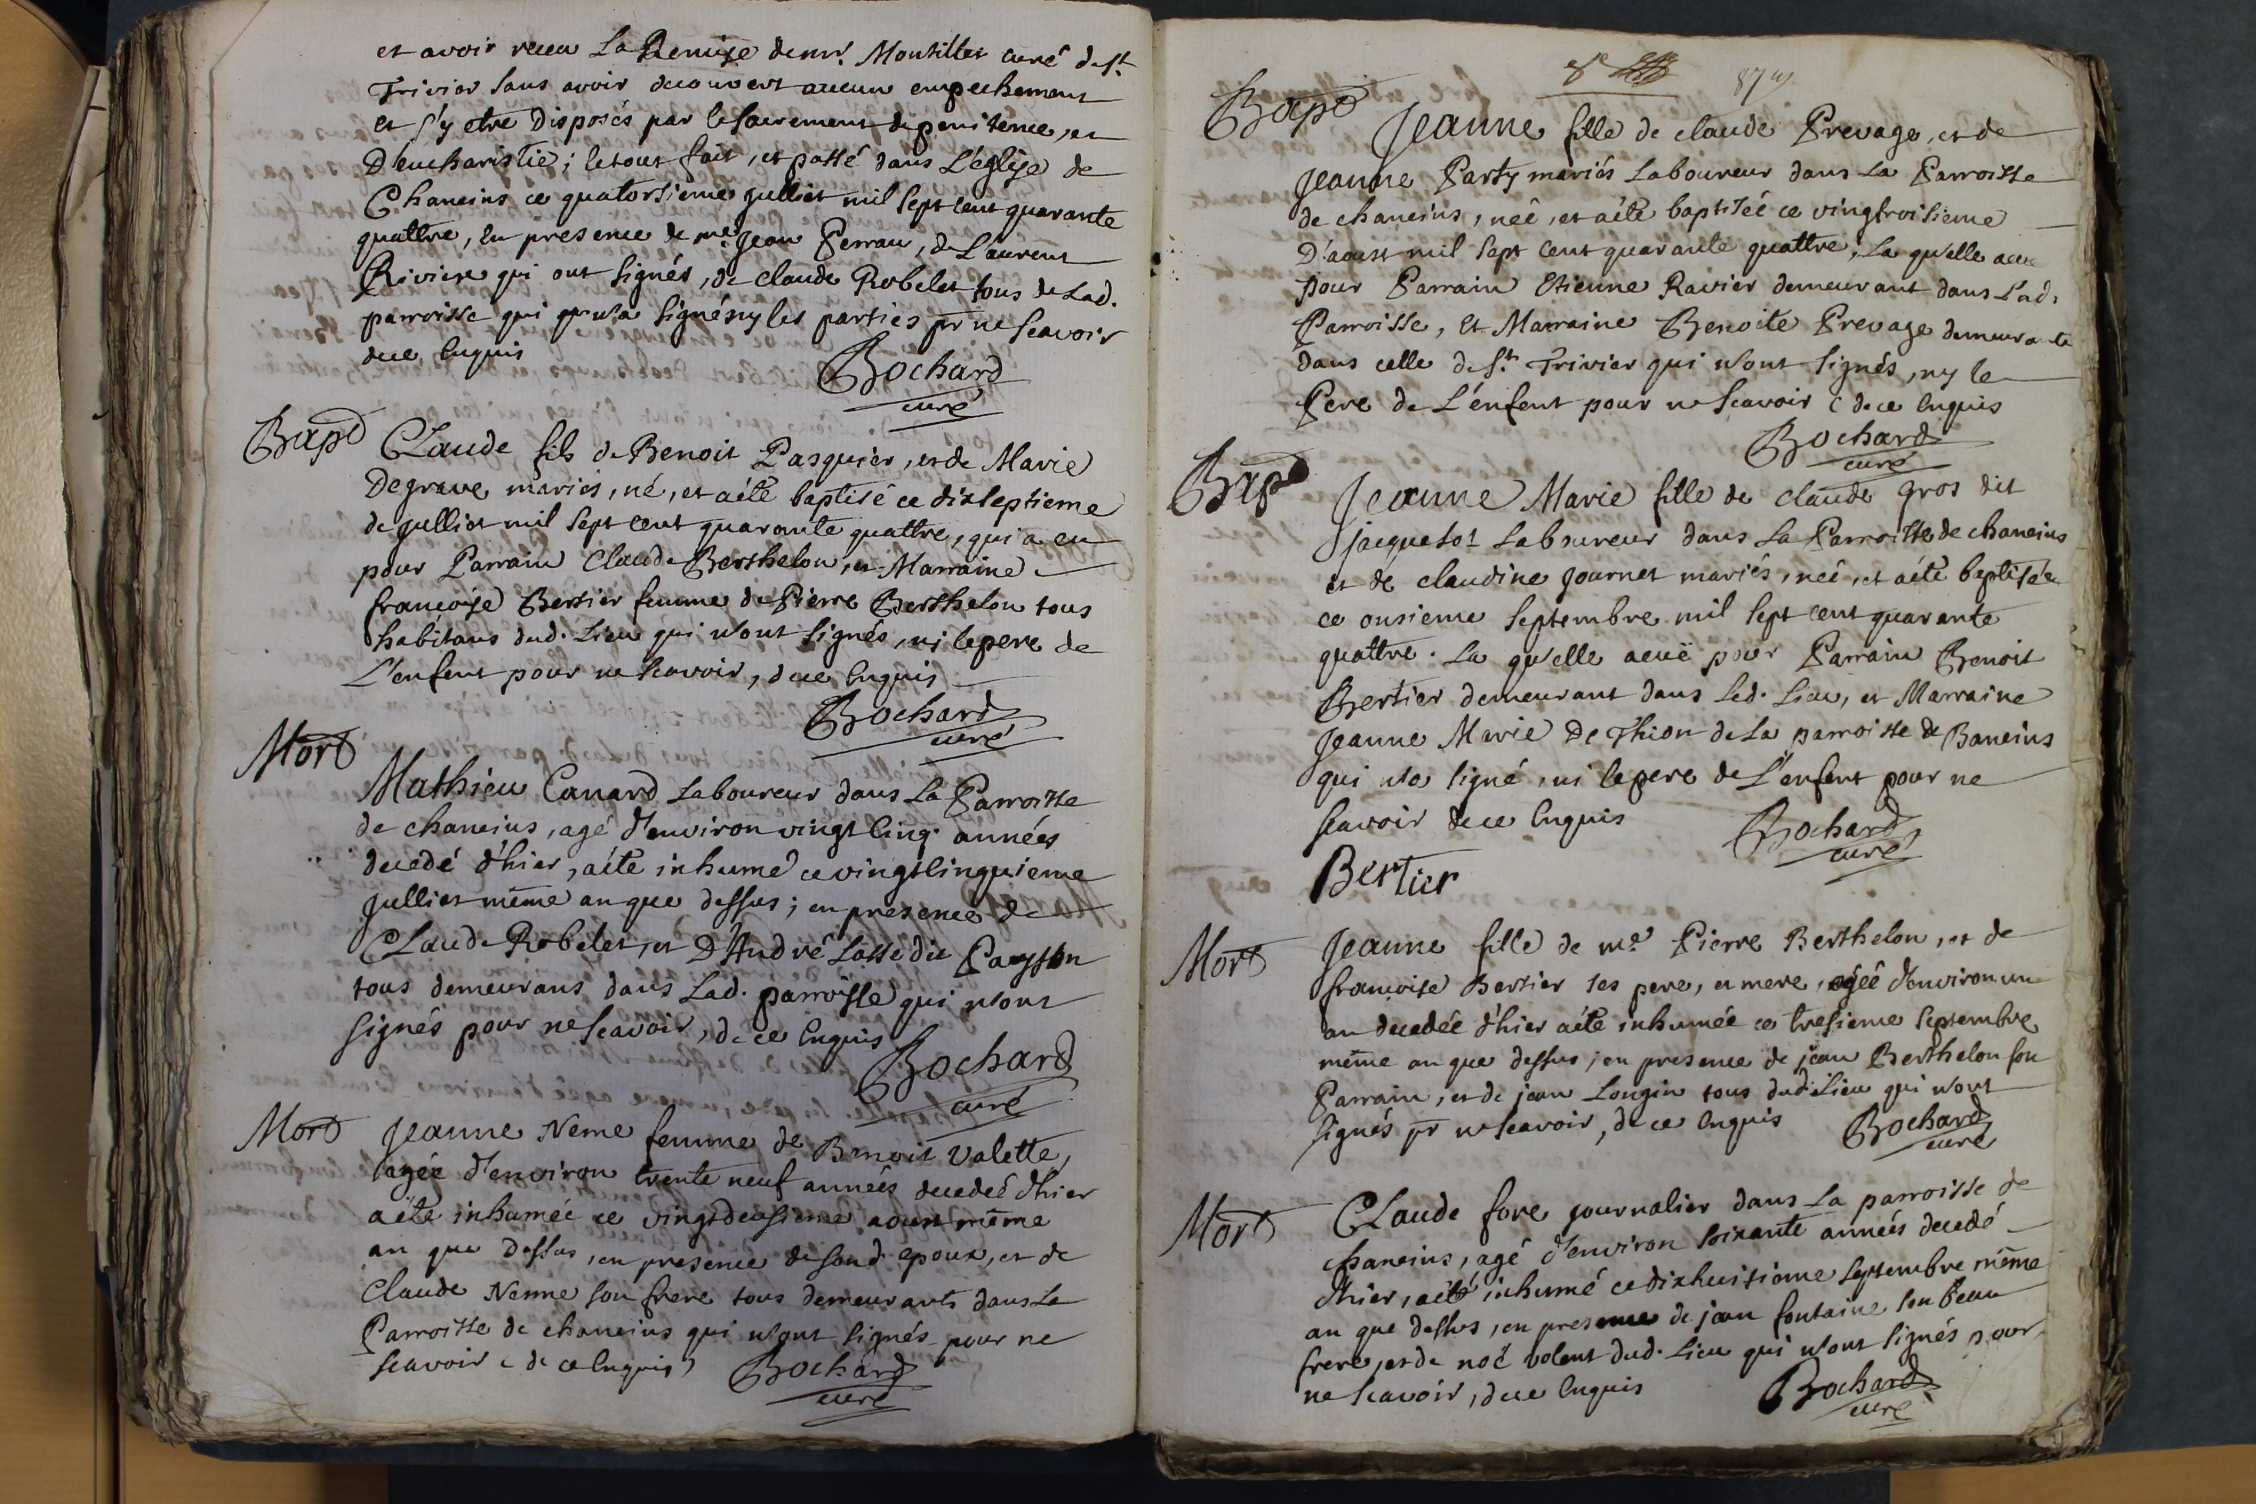 et avoir receu La Remise de mr. Montillet curé de St.
Trivier sans avoir decouvert aucun empechement
et s'y etre Disposés par le sacrement de penitence, et
D'eucharistie; le tout fait, et passé dans L'église de
Chaneins ce quatorsieme julliet mil sept cent quarante
quattre, en presence de me. Jean Perrau, de Laurent
Riviere qui ont signés, de claude Robelet tous de Lad.
parroisse qui n'a signés ny les parties pr ne scavoir
de ce Enquis
Bochard
curé
Bapt
CLaude fils de Benoit Pasquier, et de Marie
Degrave mariés, né, et aété baptisé ce dixseptieme
de julliet mil sept cent quarante quattre, qui a eu
pour Parrain Claude Berthelon, et Marraine
françoise Bertier femme de Pierre Berthelon tous
habitans dud. Lieu qui n'ont signés, ni le pere de
L'enfent pour ne scavoir, de ce Enquis
Bochard
curé
Mort
Mathieu Canard Laboureur dans La Parroisse
de chaneins, agé d'environ vingt cinq. années
decedé d'hier, aété inhumé ce vingtcinquieme
julliet même an que dessus; en presence de
CLaude Robelet, et D'André Lasse dit
tous demeurans dans Lad. parroisse qui n'ont
signés pour ne scavoir, de ce Enquis
Bochard
curé
Mort
Jeanne Neme femme de Benoit Valette,
agée d'environ trente neuf années decedeé d'hier
aété inhumée ce vingtdeusieme aoust même
an que Dessus, en presence de sond. epoux, et de
Claude Neme son frere tous demeurants dans La
Parroisse de chaneins qui n'ont signés pour ne
scavoir de ce Enquis
Bochard
curé
87
Bapt
Jeanne fille de claude Prevage, et de
Jeanne Party mariés Laboureur dans La Parroisse
de chaneins, neé, et aété baptisée ce vingtroisieme
D'aoust mil sept cent quarante quattre, La qu'elle aeu
pour Parrain Etienne Ravier demeurant dans Lad.
Parroisse, Et Marraine Benoite Prevage demeurante
dans celle de St. Trivier qui n'ont signés, ny le
Pere de L'énfent pour ne scavoir de ce Enquis
Bochard
curé
Bapt
Jeanne Marie fille de claude gros dit
jacquetot Laboureur dans La Parroisse de chaneins
et de claudine journet mariés, neé, et aété baptisée
ce onsieme septembre mil sept cent quarante
quattre. La qu'elle aeuë pour Parrain Benoit
Bertier demeurant dans led. Lieu, et Marraine
Jeanne Marie De Thion de La parroisse de Baneins
qui n'a signé, ni le pere de L'enfent pour ne
scavoir de ce Enquis
Bochard
curé
Bertier
Mort
Jeanne fille de me. Pierre Berthelon, et de
françoise Bertier ses pere, et mere, ageé d'environ un
an decedée d'hier aété inhumée ce tresieme septembre
même an que dessus; en presence de jean Berthelon son
Parrain, et de jean Longin tous dud. Lieu qui n'ont
signés pr ne scavoir, de ce Enquis
Bochard
curé
Mort
CLaude fore journalier dans La parroisse de
chaneins, agé d'environ soixante années decedé
d'hier, aété inhumé ce dixhuitieme septembre même
an que dessus, en presence de jean fontaine son beau
frere, et de noé volent dud. Lieu qui n'ont signés pour
ne scavoir, de ce Enquis
Bochard
curé